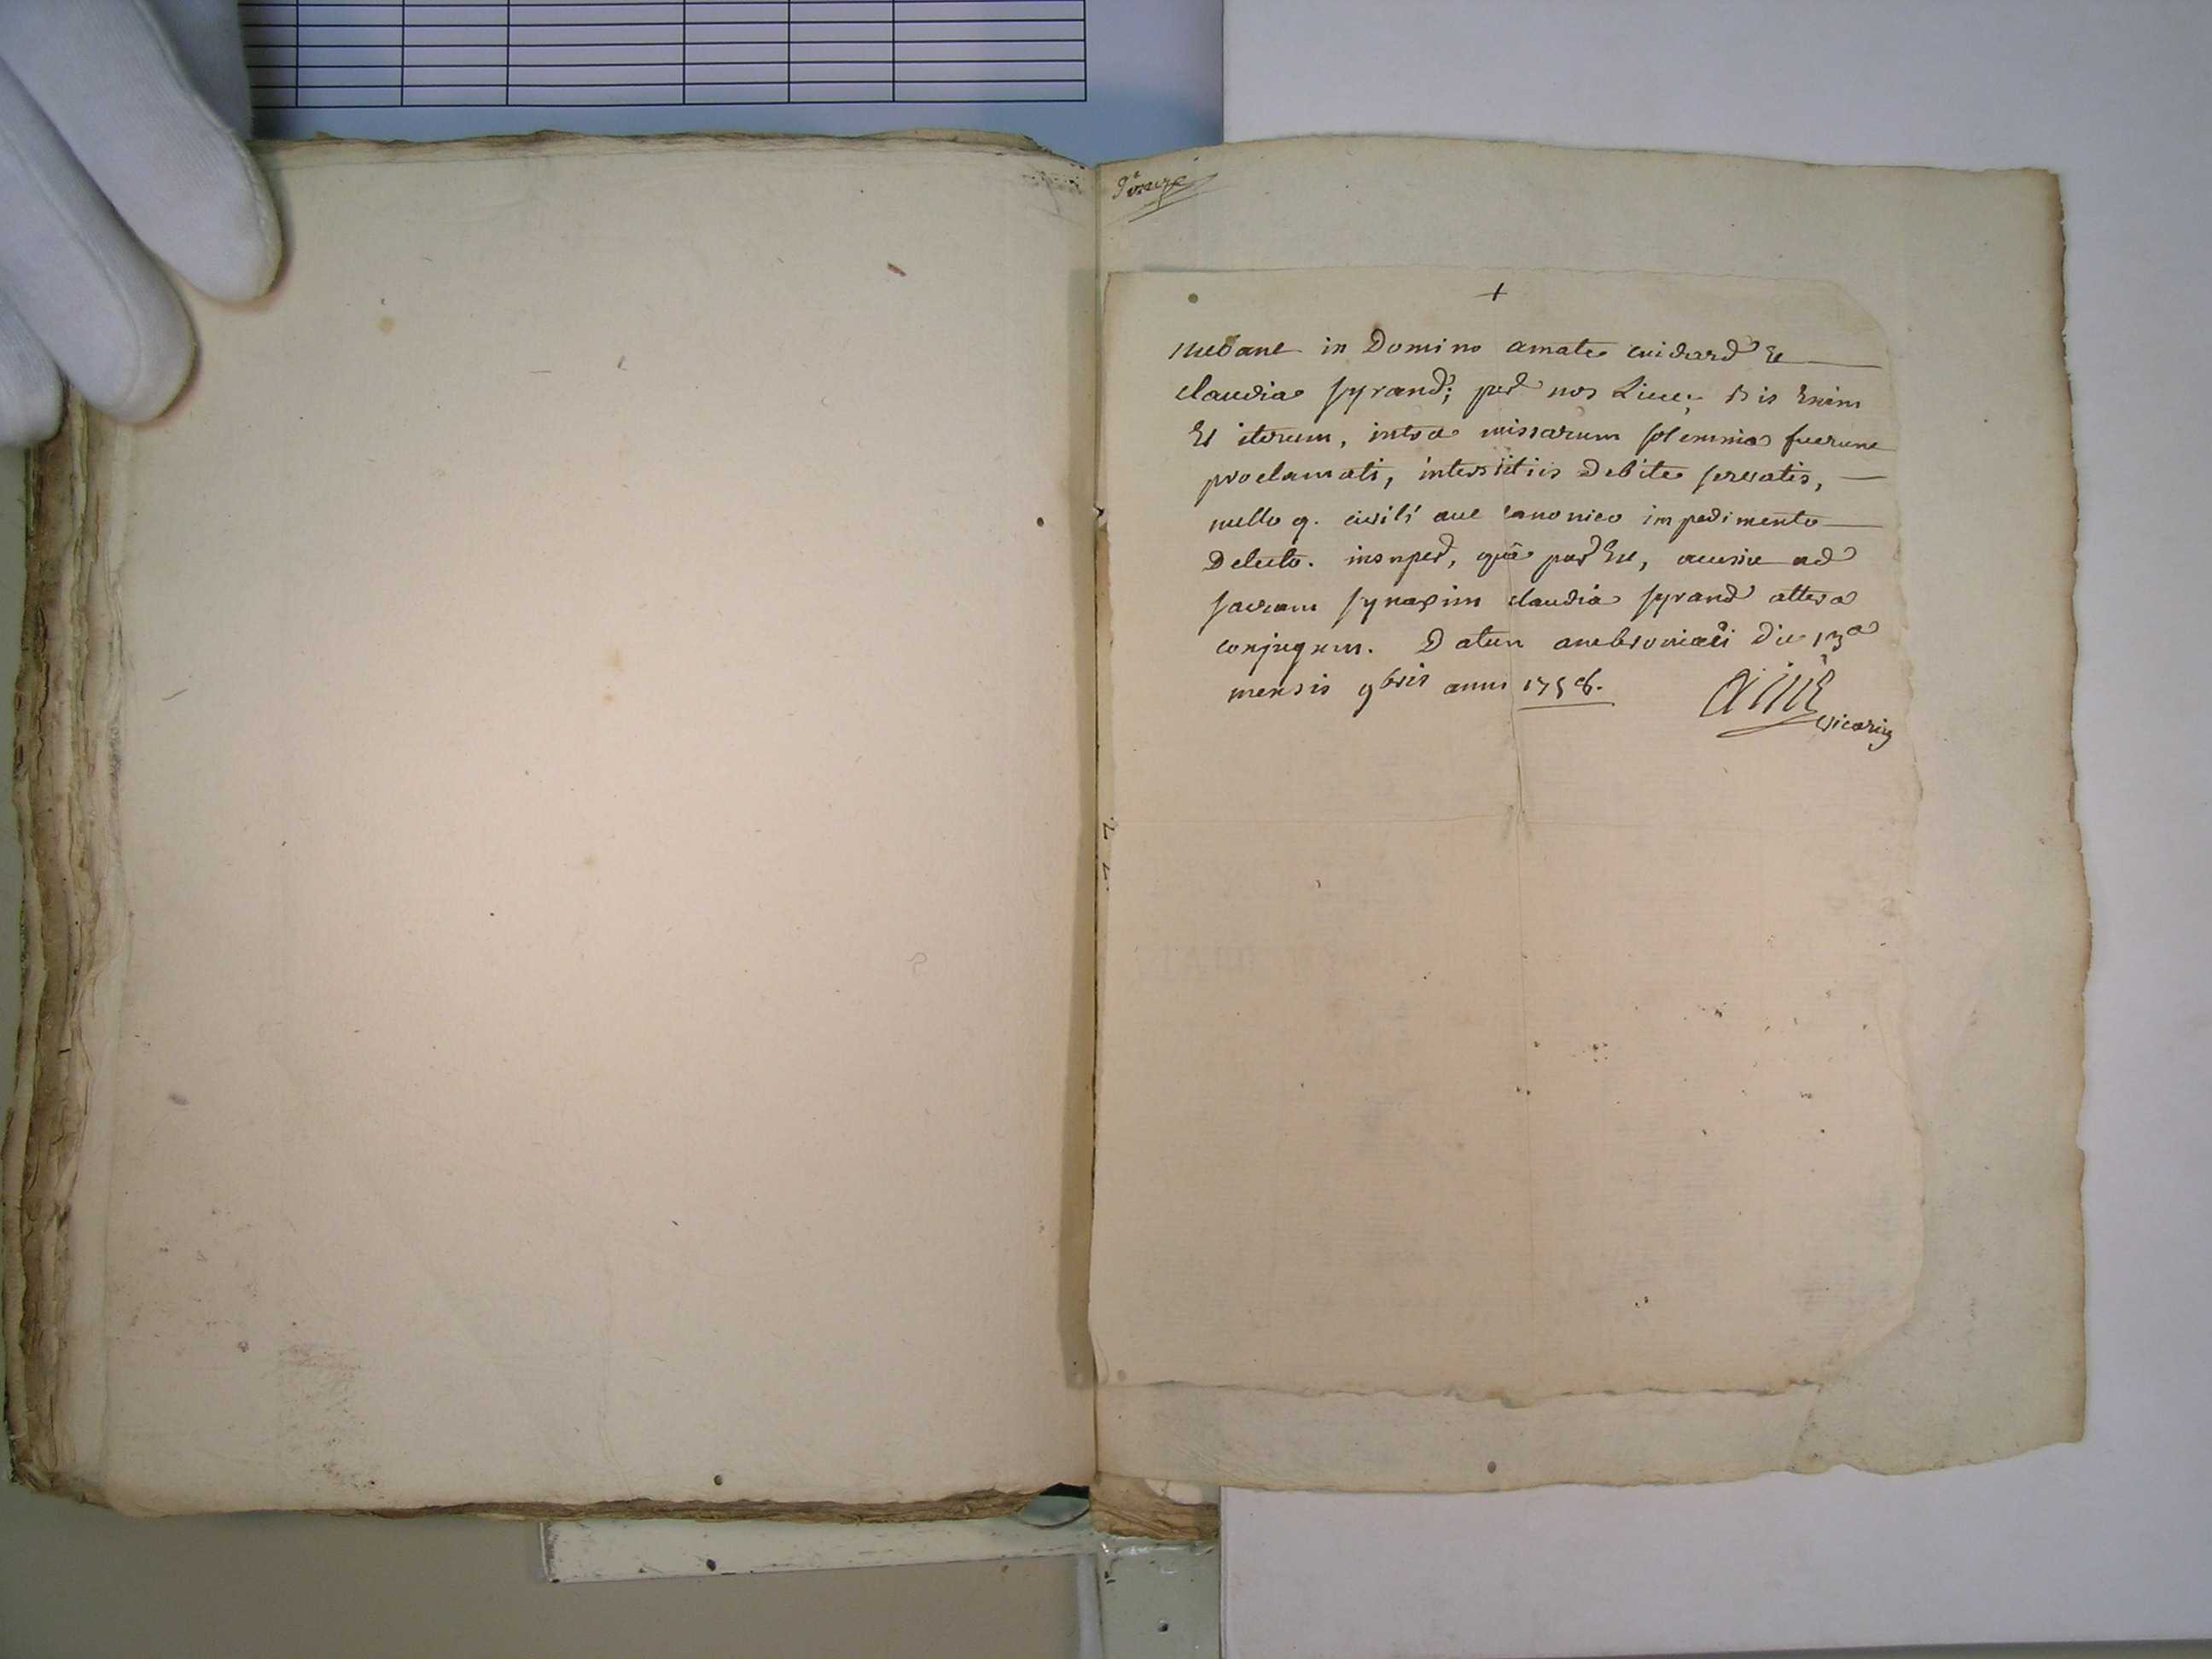 +
nubant in Domino amate cuidard et
claudia syrand; per nos Licet; bis Enim
Et iterum, intra missarum solemnia fuerunt
proclamati, interstitiis Debite servatis,
nullo q. civili aut canonico impedimento
Detecto. insuper, quâ par Est, accessit ad
sacram synaxim claudia syrand altera
conjugum. Datum ambroniaci die 13a
mensis 9bris anni 1758.
vicarius